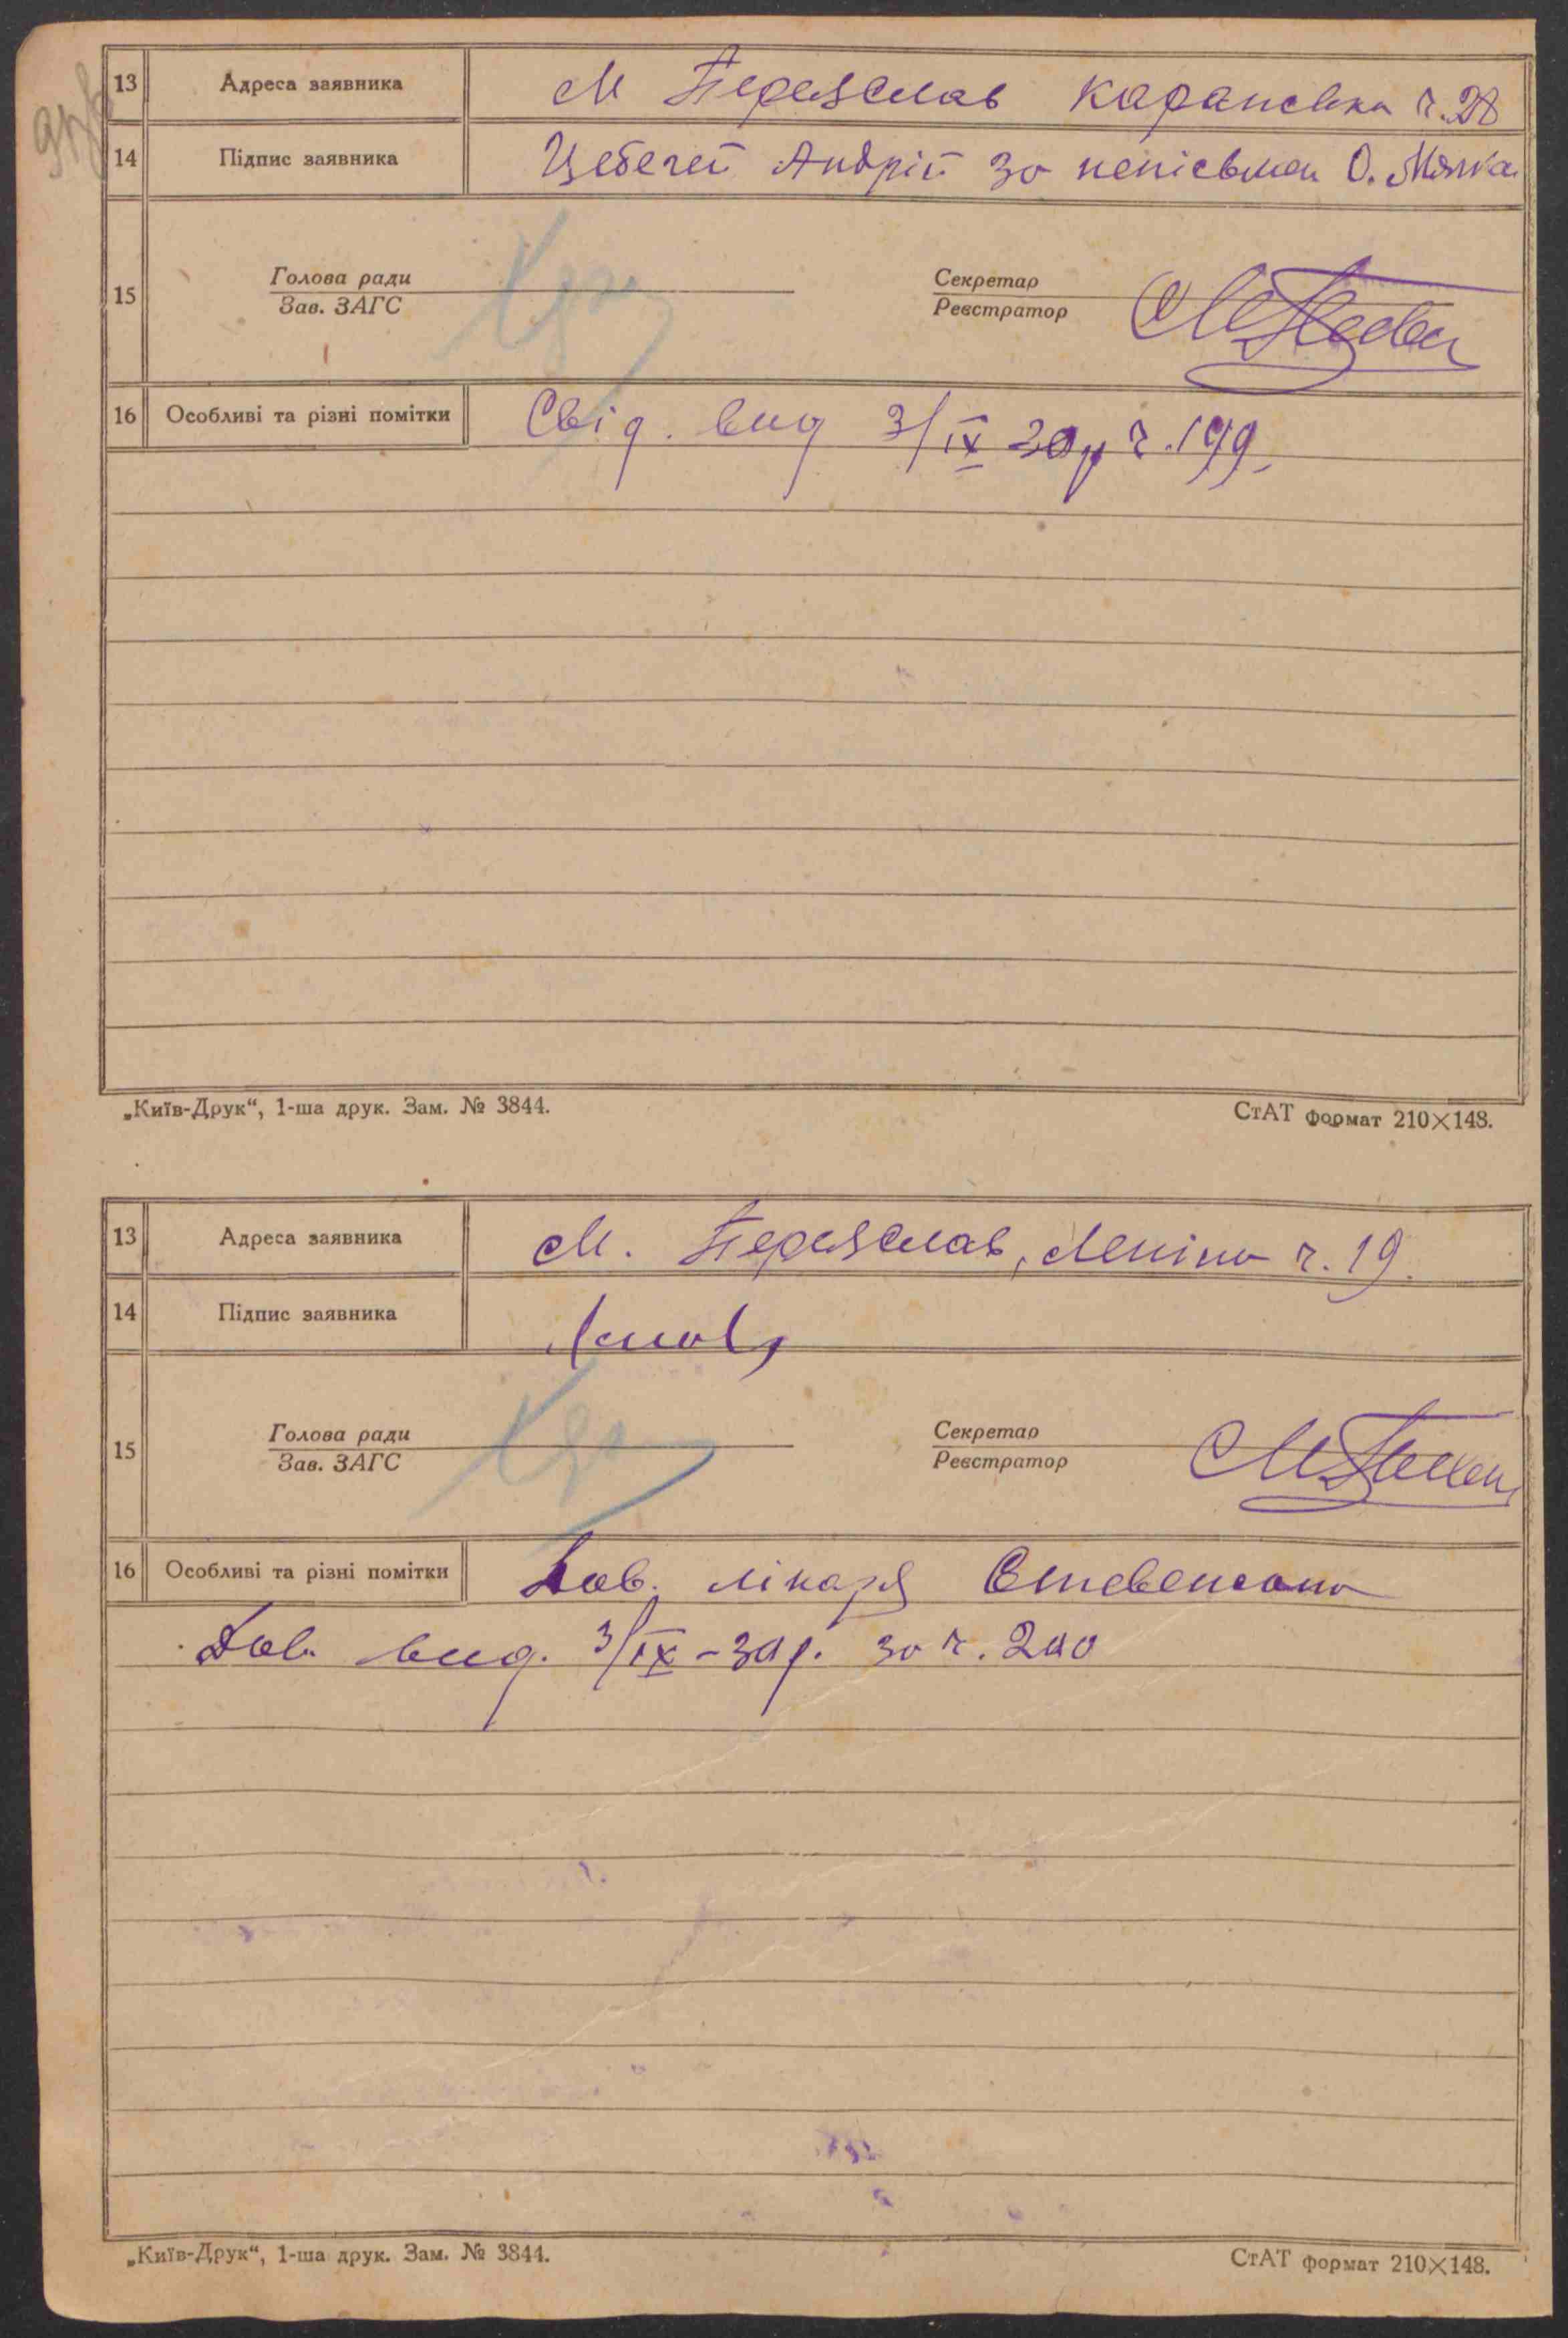 13 Адреса заявника М Переяслав Каранська ч. 28
14 Підпис заявника Цебегей Андрій За непісьмен О.
15 Голова ради Секретар
Зав. ЗАГС Реєстратор
16 Особливі та різні помітки Свід. вид 3/IX 30 р ч. 199
„Київ-Друк“, 1-ша друк. Зам. № 3844. СтАТ формат 210×148.
13 Адреса заявника М. Переяслав, Леніна ч. 19.
14 Підпис заявника
15 Голова ради Секретар
Зав. ЗАГС Реєстратор
16 Особливі та різні помітки Дов. лікаря
Дов. вид. 3/IX – 30 р. за ч. 200
„Київ-Друк“, 1-ша друк. Зам. № 3844. СтАТ формат 210×148.